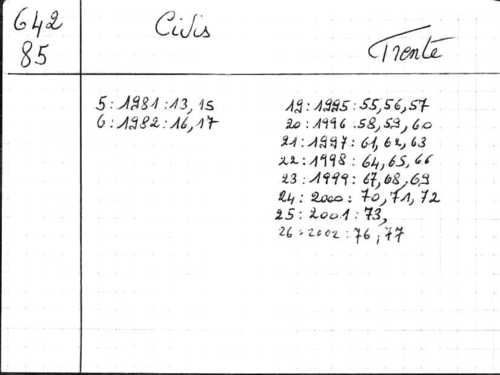 642
85
Civis
Trente
5:1981:13,15
6:1982:16,17
19:1995:55,56,57
20:1996:58,59,60
21:1997:61,62,63
22:1998:64,65,66
23:1999:67,68,69
24:2000:70,71,72
25:2001:73,
26:2002:76,77